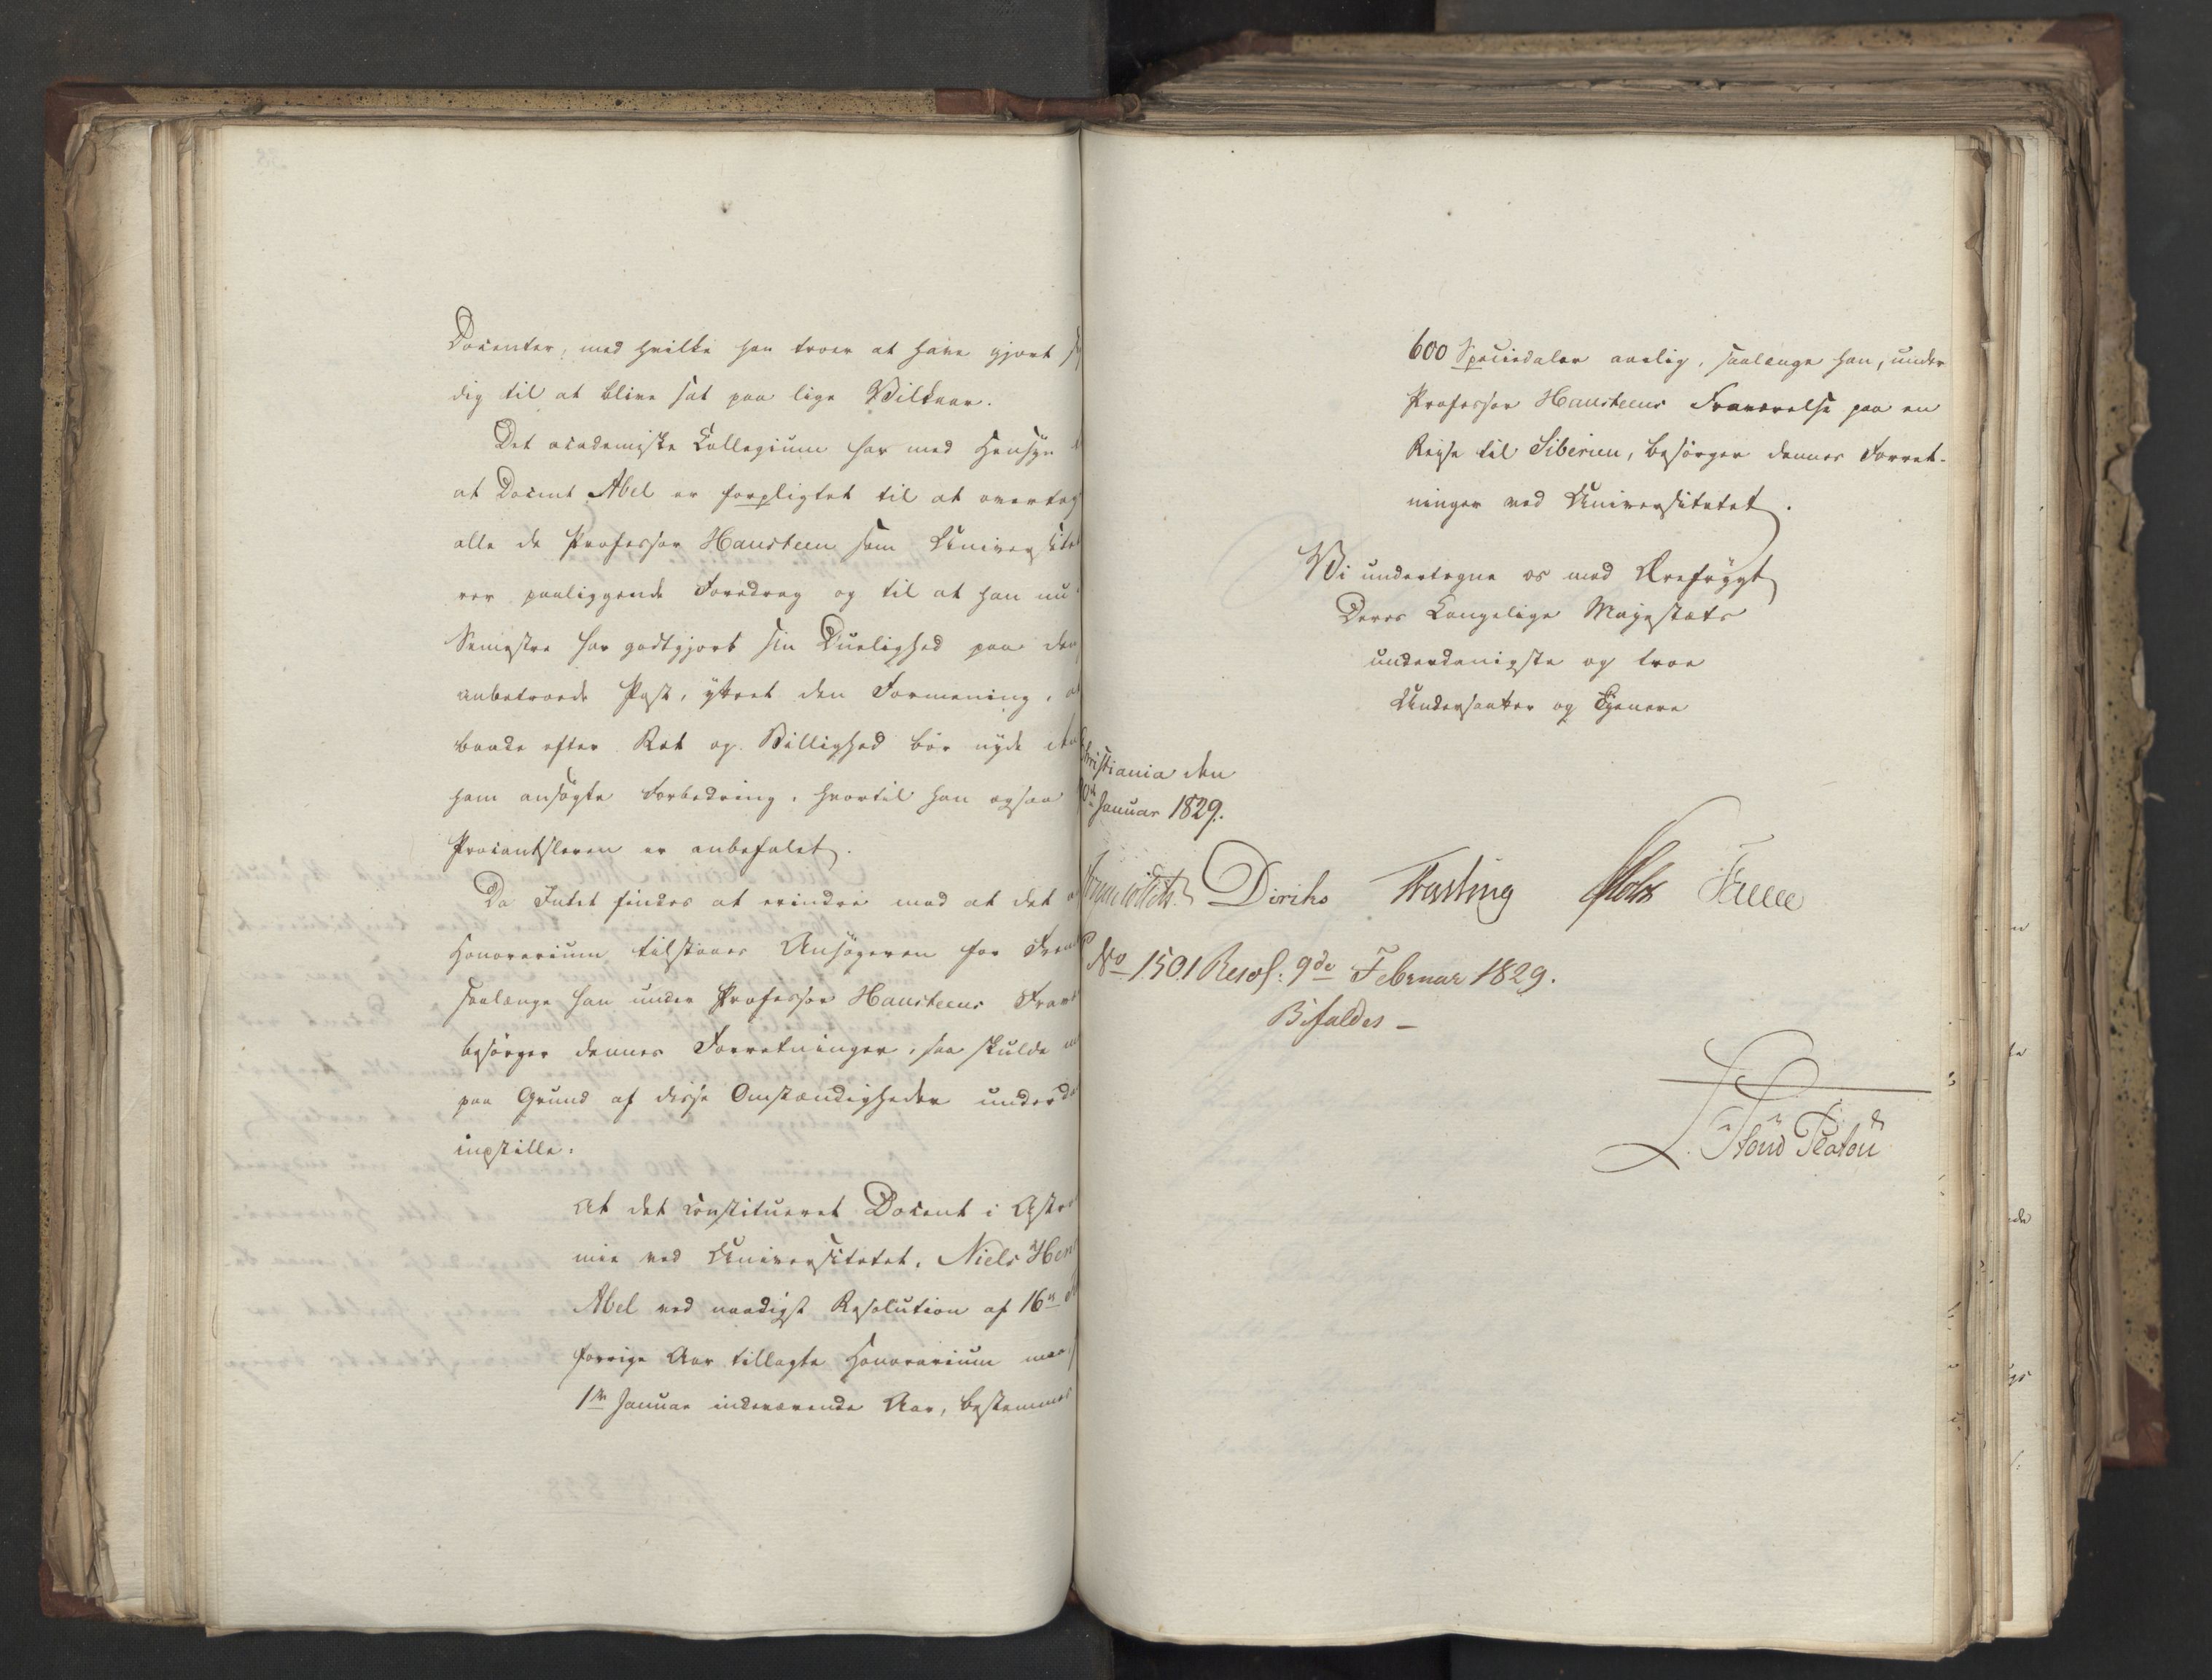 Docenter, med hvilke han troer at have gjort
dig til at blive sat paa lige Vilkaar.
Det academiske Collegium har med Hensyn
at Docent Abel er forpligtet til at overtag
alle de Professor Hansteen som Universitets
rer paaliggende Foredrag og til at han nu
Semestre har godtgjort sin Duelighed paa den
anbetroede Post, yttret den Formening, at
baade efter Ret og Billighed bör nyde den
ham ansögte Forbedring, hvortil han ogsaa
Procantsleren er anbefalet.
Da Intet findes at erindre mod at det
Honorarium tilstaaes Ansögeren for Frem
saalænge han under Professor Hansteens Frav
besörger dennes Forretninger, saa skulde
paa Grund af disse Omstændigheder underd
indstille:
At det constitueret Docent i Astro
mie ved Universitetet, Niels Hen
Abel ved naadigst Resolution af 16de
forrige Aar tillagte Honorarium maa
1ste Januar indeværende Aar, bestemmes
600 Speciedaler aarlig, saalænge han, under
Professor Hansteens Fraværelse paa en
Reise til Siberien, besörger dennes Forret-
ninger ved Universitetet.
Vi undertegne os med Ærefrygt
Deres Kongelige Majestæts
underdanigste og troe
Undersaatter og Tjenere
Christiania den
Januar 1829.
Diriks Krafting Holst Fasting
No 1501 Resol: 9de Februar 1829.
Bifaldes —
Stoud Platou